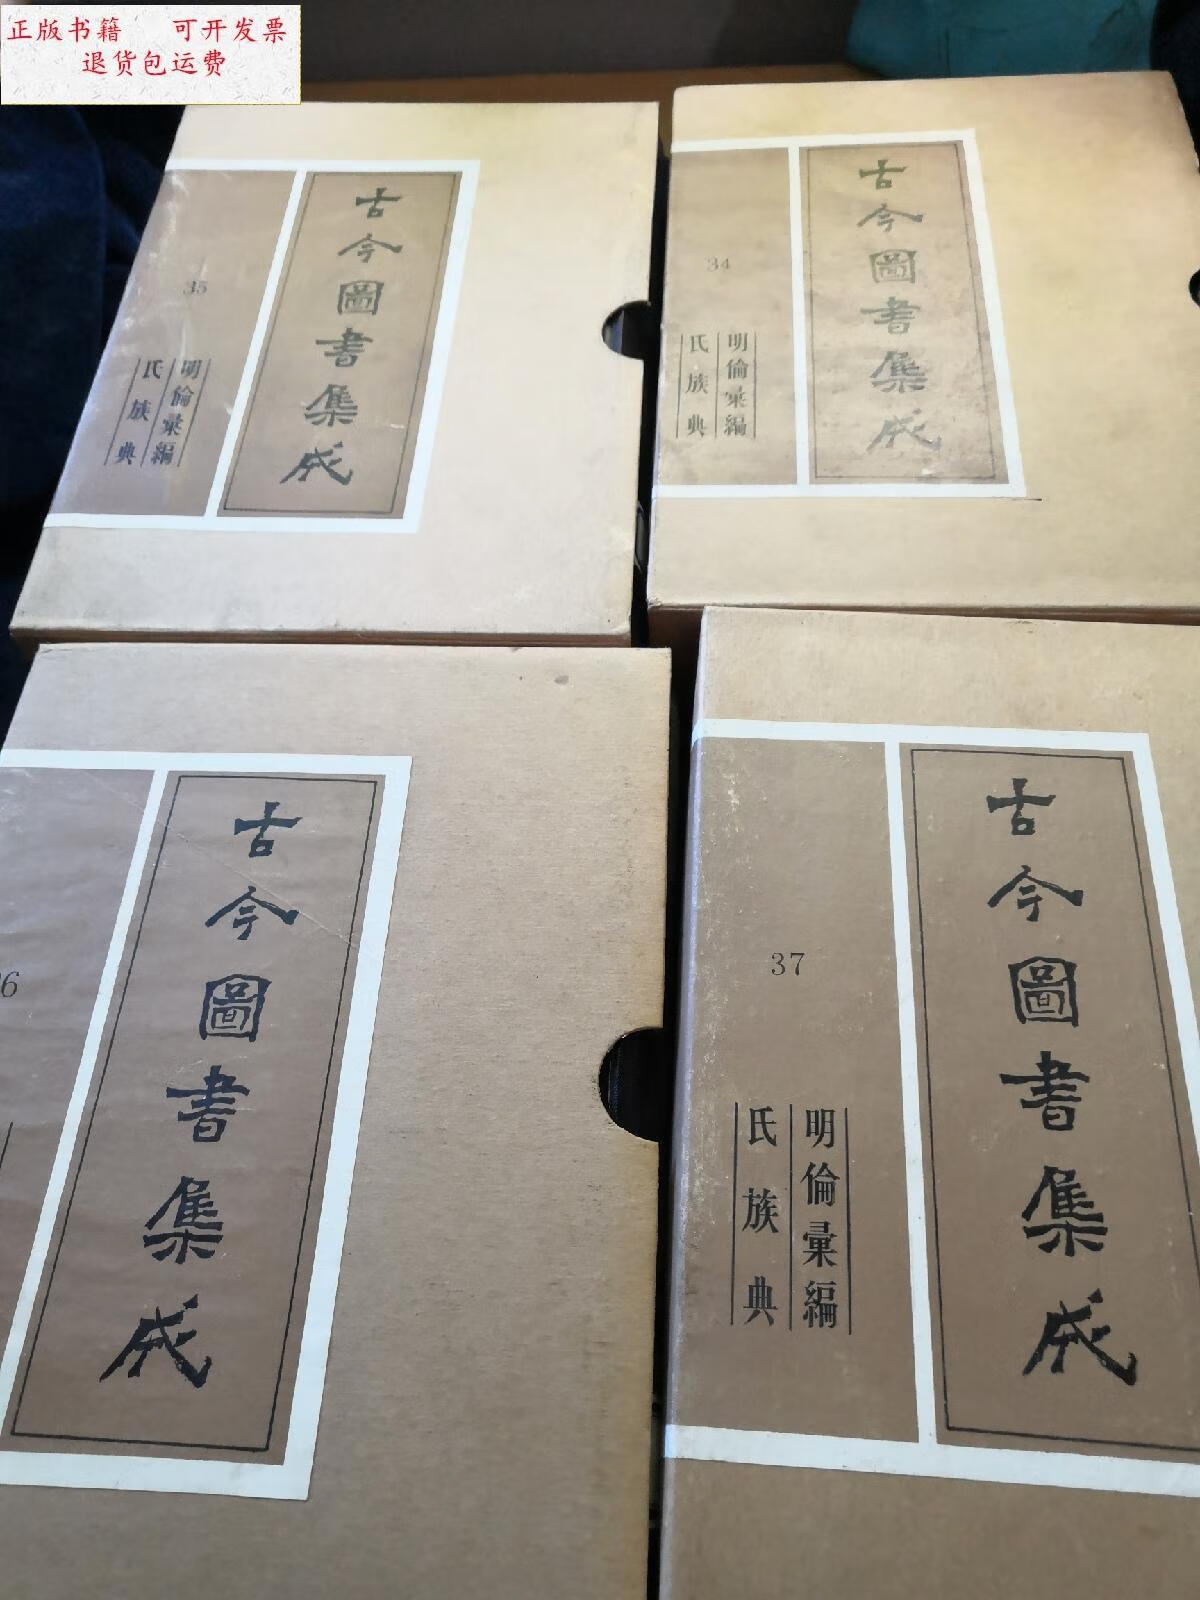 正版书籍 可开发票
退货包运费
古今圖書集成
35
明倫彙編
氏族典
古今圖書集成
34
明倫彙編
氏族典
古今圖書集成
6
古今圖書集成
37
明倫彙編
氏族典